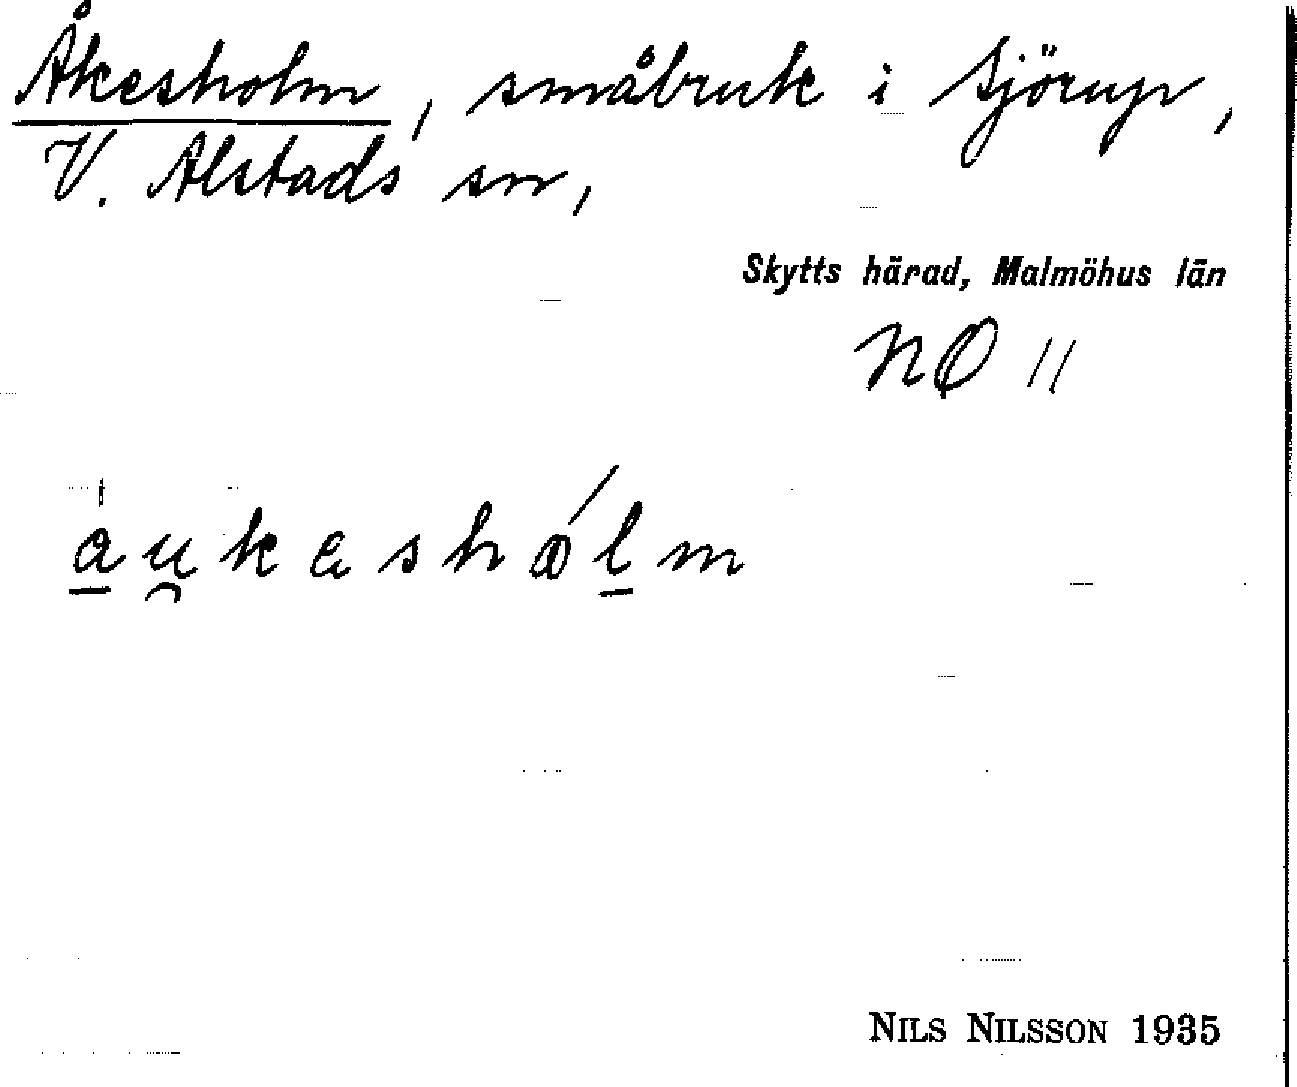 Åkesholm, småbruk i Sjörup,
V. Alstads sn,
Skytts härad, Malmöhus län
NO 11
au̯keshɷ́lm
NILS NILSSON 1935